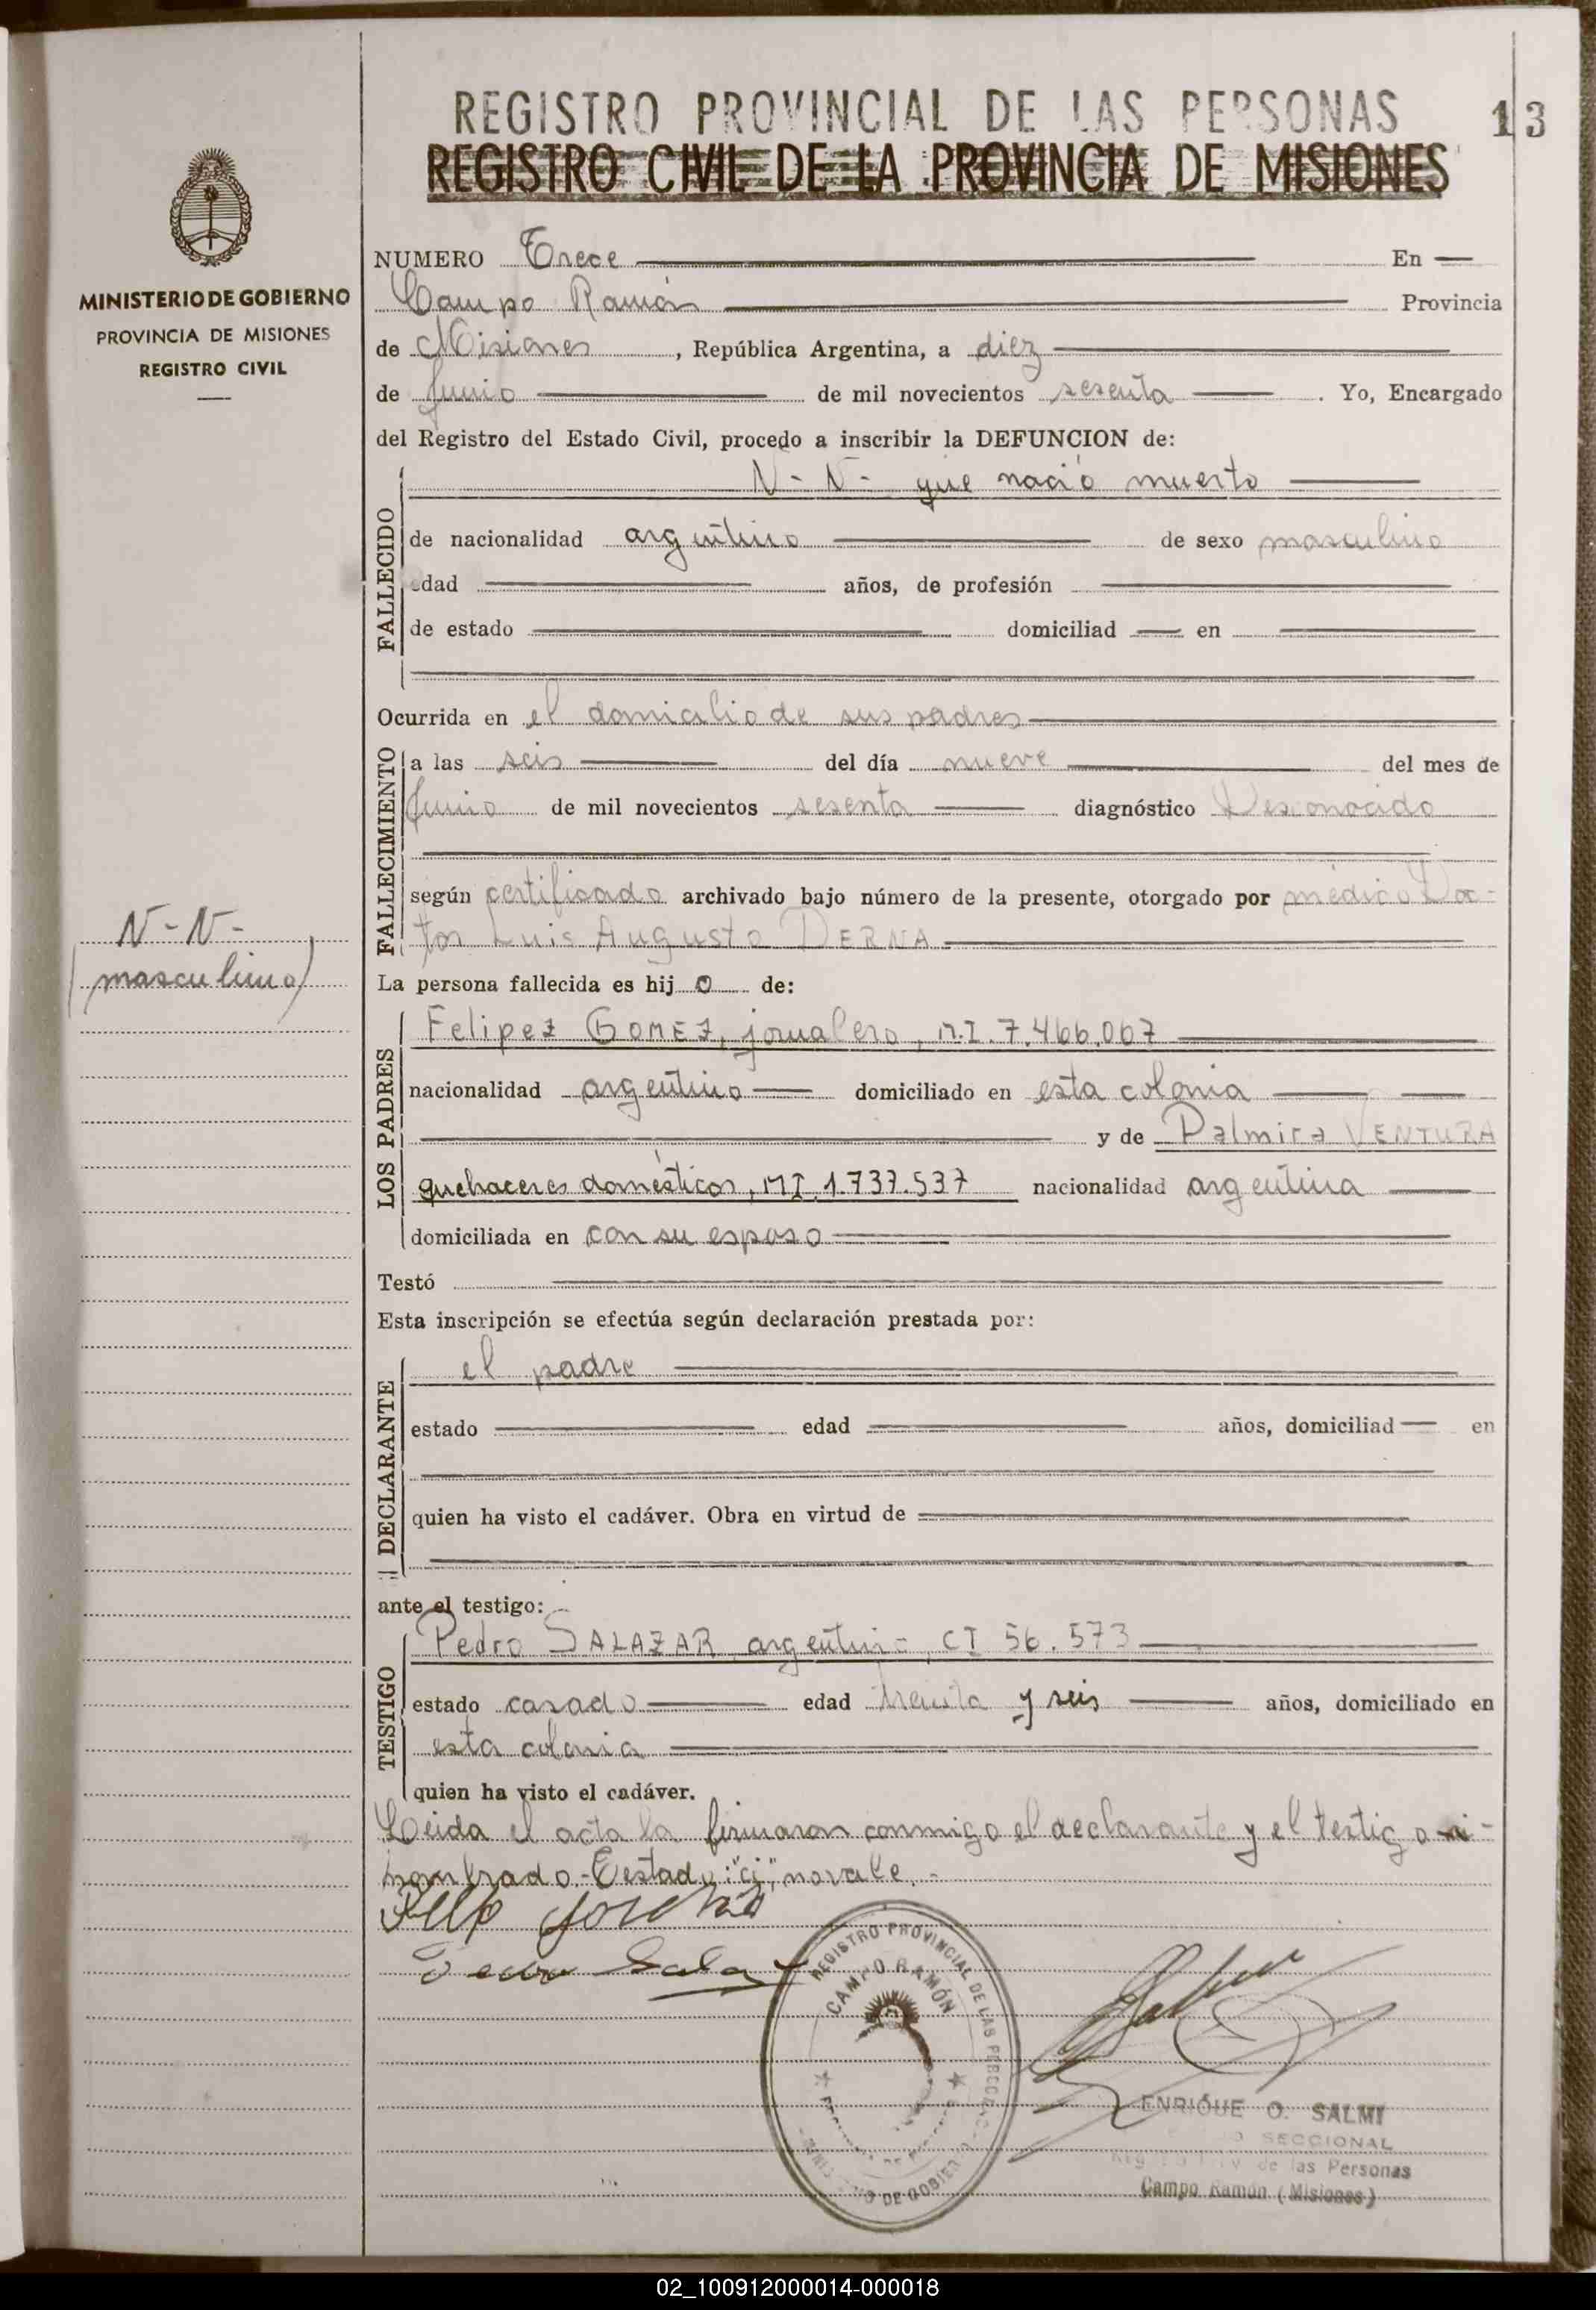 REGISTRO PROVINCIAL DE LAS PERSONAS
13
REGISTRO CIVIL DE LA PROVINCIA DE MISIONES
MINISTERIO DE GOBIERNO
PROVINCIA DE MISIONES
REGISTRO CIVIL
NUMERO Trece En
Campo Ramón Provincia
de Misiones, República Argentina, a diez
de Junio de mil novecientos sesenta. Yo, Encargado
del Registro del Estado Civil, procedo a inscribir la DEFUNCION de:
FALLECIDO
N-N- que nació muerto
de nacionalidad argentino de sexo masculino
edad años, de profesión
de estado domiciliad en
Ocurrida en el domicilio de sus padres
FALLECIMIENTO
a las seis del día nueve del mes de
Junio de mil novecientos sesenta diagnóstico Desconocido
según certificado archivado bajo número de la presente, otorgado por médico Doc-
tor Luis Augusto DERNA
N-N-
(masculino)
La persona fallecida es hijo de:
LOS PADRES
Felipez GOMEZ, jornalero, M.I. 7.466.067
nacionalidad argentino domiciliado en esta colonia
y de Palmira VENTURA
quehaceres domésticos, MI 1.737.537 nacionalidad argentina
domiciliada en con su esposo
Testó
Esta inscripción se efectúa según declaración prestada por:
DECLARANTE
el padre
estado edad años, domiciliad en
quien ha visto el cadáver. Obra en virtud de
ante el testigo:
TESTIGO
Pedro SALAZAR argentino, CI 56.573
estado casado edad treinta y seis años, domiciliado en
esta colonia
quien ha visto el cadáver.
Leida el acta la firmaron conmigo el declarante y el testigo
nombrado.- Testado: no vale.-
REGISTRO PROVINCIAL DE LAS PERSONAS
CAMPO RAMÓN
DE GOBIERNO
ENRIQUE O. SALMI
SECCIONAL
de las Personas
Campo Ramón (Misiones)
02_100912000014-000018